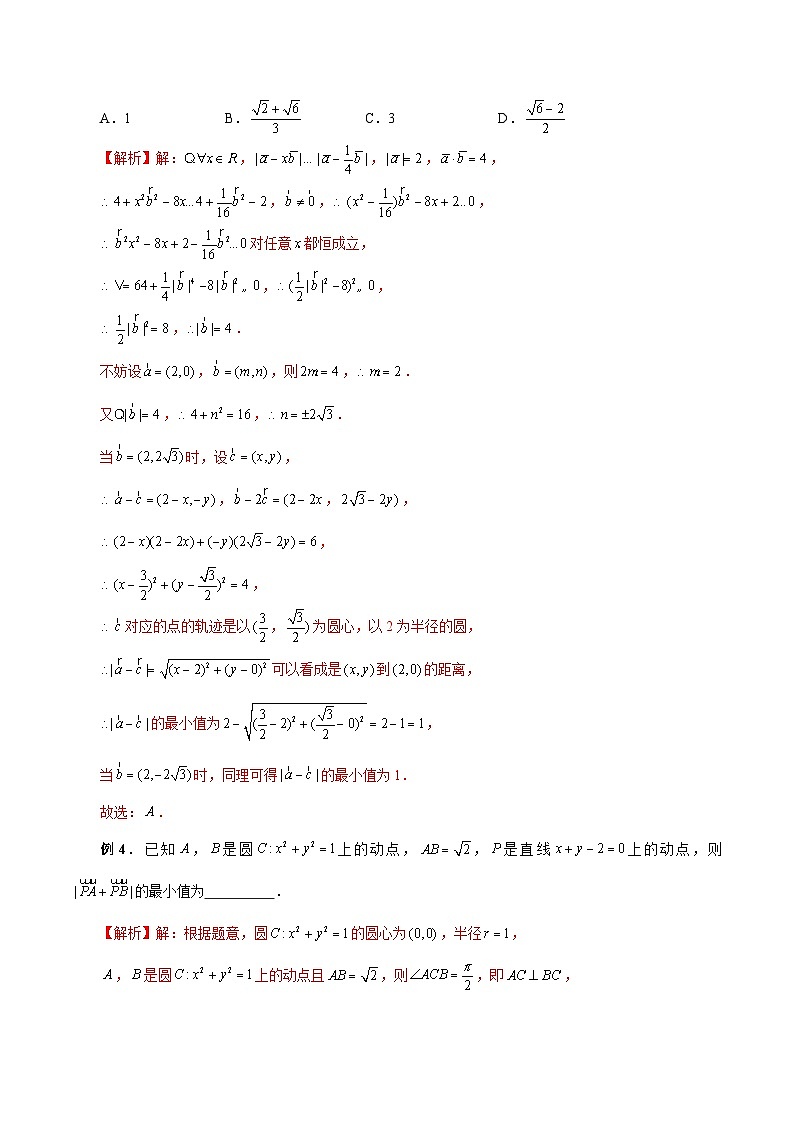 A．1 B．$\frac{\sqrt{2}+\sqrt{6}}{3}$ C．3 D．$\frac{\sqrt{6}-2}{2}$
【解析】解：Q∀x∈R，$|\vec{a}-x\vec{b}|...|\vec{a}-\frac{1}{4}\vec{b}|$，$|\vec{a}|=2$，$\vec{a}\cdot\vec{b}=4$，
∴$4+x^2\vec{b}^2-8x...4+\frac{1}{16}\vec{b}^2-2$，$\vec{b}≠\vec{0}$，∴$(x^2-\frac{1}{16})\vec{b}^2-8x+2..0$，
∴$\vec{b}^2x^2-8x+2-\frac{1}{16}\vec{b}^2...0$对任意x都恒成立，
∴V=$64+\frac{1}{4}|\vec{b}|^4-8|\vec{b}|^2$„0，∴$(\frac{1}{2}|\vec{b}|^2-8)^2$„0，
∴$\frac{1}{2}|\vec{b}|^2=8$，∴$|\vec{b}|=4$．
不妨设$\vec{a}=(2,0)$，$\vec{b}=(m,n)$，则$2m=4$，∴$m=2$．
又Q$|\vec{b}|=4$，∴$4+n^2=16$，∴$n=±2\sqrt{3}$．
当$\vec{b}=(2,2\sqrt{3})$时，设$\vec{c}=(x,y)$，
∴$\vec{a}-\vec{c}=(2-x,-y)$，$\vec{b}-2\vec{c}=(2-2x$，$2\sqrt{3}-2y)$，
∴$(2-x)(2-2x)+(-y)(2\sqrt{3}-2y)=6$，
∴$(x-\frac{3}{2})^2+(y-\frac{\sqrt{3}}{2})^2=4$，
∴$\vec{c}$对应的点的轨迹是以$(\frac{3}{2}$，$\frac{\sqrt{3}}{2})$为圆心，以2为半径的圆，
∴$|\vec{a}-\vec{c}|=\sqrt{(x-2)^2+(y-0)^2}$可以看成是$(x,y)$到$(2,0)$的距离，
∴$|\vec{a}-\vec{c}|$的最小值为$2-\sqrt{(\frac{3}{2}-2)^2+(\frac{\sqrt{3}}{2}-0)^2}=2-1=1$，
当$\vec{b}=(2,-2\sqrt{3})$时，同理可得$|\vec{a}-\vec{c}|$的最小值为1．
故选：A．
例4．已知A，B是圆$C:x^2+y^2=1$上的动点，$AB=\sqrt{2}$，P是直线$x+y-2=0$上的动点，则
$|\overrightarrow{PA}+\overrightarrow{PB}|$的最小值为_________．
【解析】解：根据题意，圆$C:x^2+y^2=1$的圆心为$(0,0)$，半径$r=1$，
A，B是圆$C:x^2+y^2=1$上的动点且$AB=\sqrt{2}$，则$∠ACB=\frac{π}{2}$，即$AC⊥BC$，